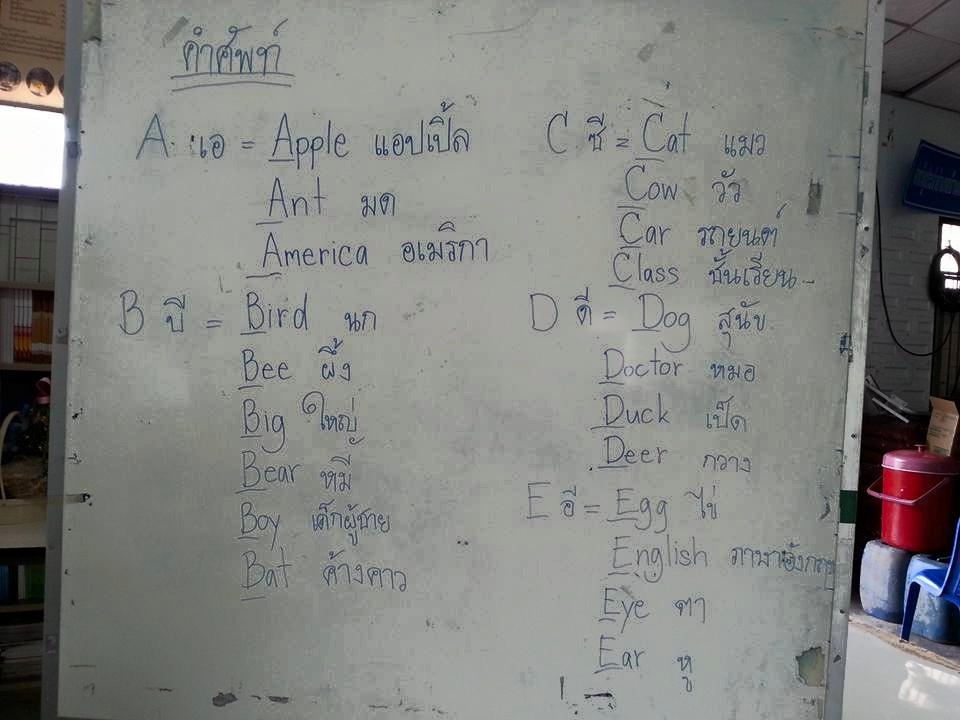 คำศัพท์
A เอ = Apple แอปเปิ้ล
Ant มด
America อเมริกา
B บี = Bird นก
Bee ผึ้ง
Big ใหญ่
Bear หมี
Boy เด็กผู้ชาย
Bat ค้างคาว
C ซี = Cat แมว
Cow วัว
Car รถยนต์
Class ชั้นเรียน
D ดี = Dog สุนัข
Doctor หมอ
Duck เป็ด
Deer กวาง
E อี = Egg ไข่
English ภาษาอังกฤษ
Eye ตา
Ear หู